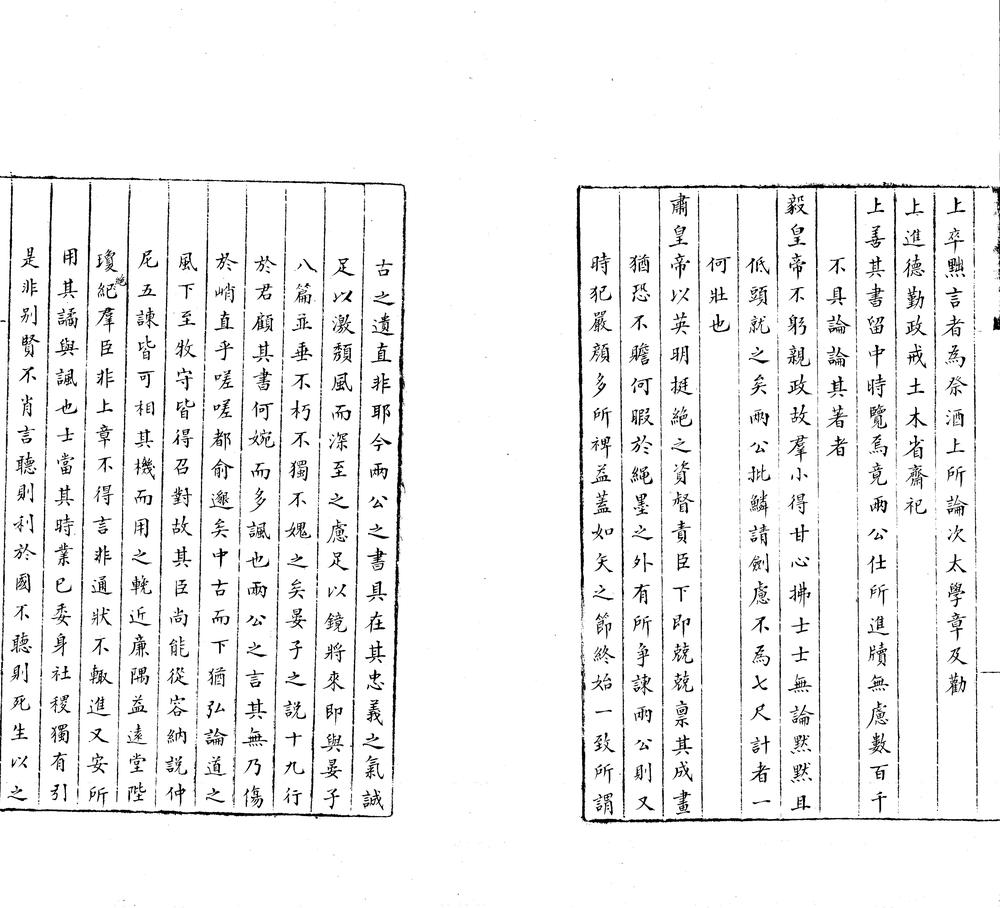 上卒黜言者為祭酒上所論次太學章及勸
上進德勤政戒土木省齋祀
上善其書留中時覽焉竟兩公仕所進牘無慮數百千
不具論論其著者
毅皇帝不躬親政故羣小得甘心拂士士無論黙黙且
低頭就之矣兩公批鱗請劍慮不為七尺計者一
何壯也
肅皇帝以英明挺絶之資督責臣下即兢兢禀其成畫
猶恐不贍何暇於繩墨之外有所争諫兩公則又
時犯嚴顔多所裨益蓋如矢之節終始一致所謂
古之遺直非耶今兩公之書具在其忠義之氣誠
足以激頽風而深至之慮足以鏡將來即與晏子
八篇並垂不朽不獨不媿之矣晏子之説十九行
於君顧其書何婉而多諷也兩公之言其無乃傷
於峭直乎嗟嗟都俞邈矣中古而下猶弘論道之
風下至牧守皆得召對故其臣尚能從容納説仲
尼五諫皆可相其機而用之輓近亷隅益遠堂陛
瓊紀羣臣非上章不得言非通狀不輙進又安所
用其譎與諷也士當其時業已委身社稷獨有引
是非别賢不肖言聽則利於國不聽則死生以之